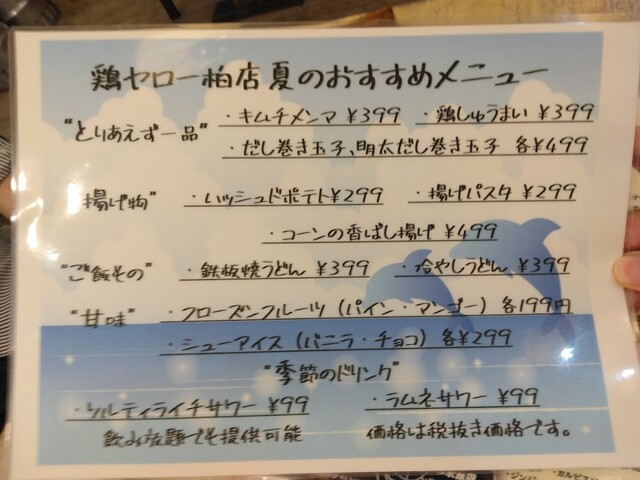 鶏ヤロー柏店夏のおすすめメニュー
"とりあえず一品" ・キムチメンマ ¥399 ・鶏しゅうまい ¥399
・だし巻き玉子、明太だし巻き玉子 各¥499
"揚げ物" ・ハッシュドポテト¥299 ・揚げパスタ ¥299
・コーンの香ばし揚げ ¥499
"ご飯もの" ・鉄板焼うどん ¥399 ・冷やしうどん ¥399
"甘味" ・フローズンフルーツ (パイン・マンゴー) 各199円
・シューアイス (バニラ・チョコ) 各¥299
"季節のドリンク"
・ソルティライチサワー ¥99 ・ラムネサワー ¥99
飲み放題でも提供可能 価格は税抜き価格です。